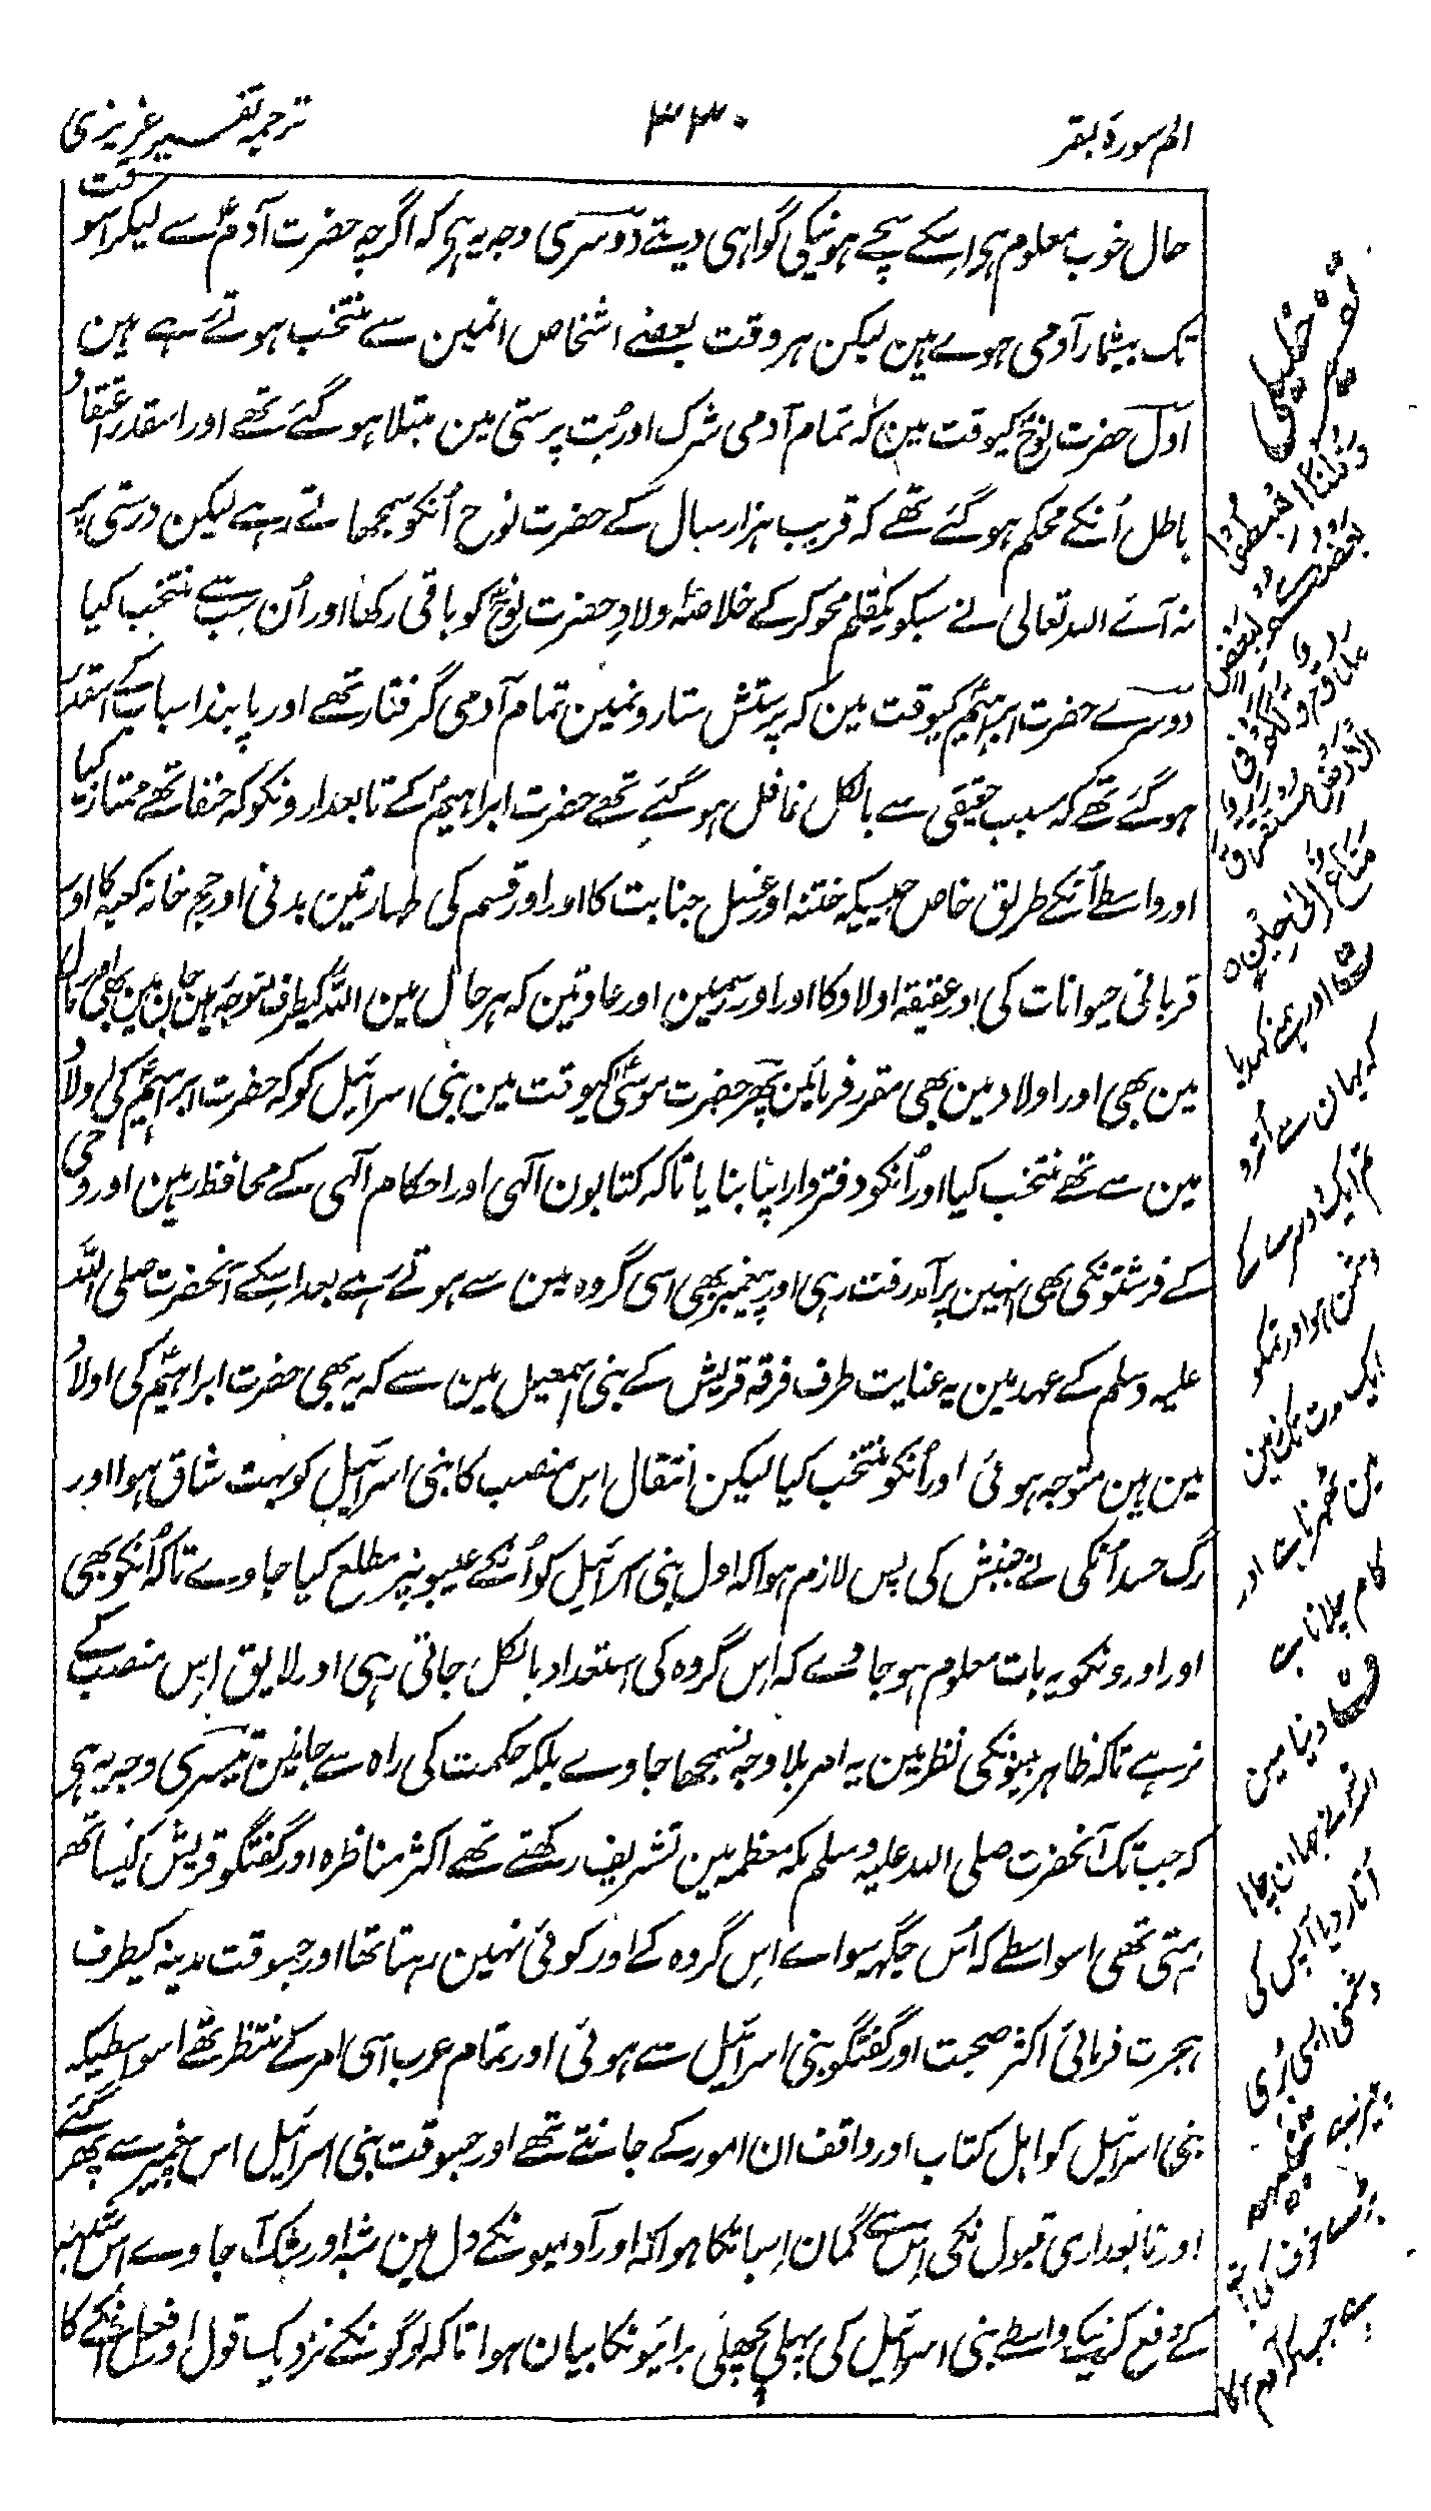 الم سورۂ بقر
۳۳۰
ترجمہ تفسیر عزیزی
حال خوب معلوم ہی اسکے سچے ہونیکی گواہی دیتے دوسری وجہ یہ ہی کہ اگرچہ حضرت آدمؑ سے لیکر اسوقت
تک بیشمار آدمی ہوے ہین لیکن ہر وقت بعضے اشخاص انمین سے منتخب ہوتے رہے ہین
اول حضرت نوحؑ کیوقت مین کہ تمام آدمی شرک اور بُت پرستی مین مبتلا ہو گئے تھے اور اسقدر اعتقاد
باطل اُنکے محکم ہو گئے تھے کہ قریب ہزار سال کے حضرت نوح اُنکو سمجھاتے رہے لیکن درستی پر
نہ آئے اللہ تعالی نے سبکو یکقلم محو کر کے خلاصۂ ولادِ حضرت نوحؑ کو باقی رکھا اور اُن سب سے منتخب کیا
دوسرے حضرت ابراہیمؑ کیوقت مین کہ پرستش ستارونمین تمام آدمی گرفتار تھے اور پابند اسباب کے اسقدر
ہو گئے تھے کہ سبب حقیقی سے بالکل غافل ہو گئے تھے حضرت ابراہیمؑ کے تابعدارونکو کہ حنفا تھے ممتاز کیا
اور واسطے اُنکے طریق خاص جیسیکہ ختنہ اور غسل جنابت کا اور اور قسم کی طہارتین بدنی اور حج خانہ کعبہ کا اور
قربانی حیوانات کی اور عقیقہ اولاد کا اور اور رسمین اور عادتین کہ ہر حال مین اللہ کیطرف متوجہ ہین جان مین بھی اور مال
مین بھی اور اولاد مین بھی مقرر فرمائین پھر حضرت موسیؑ کیوقت مین بنی اسرائیل کو کہ حضرت ابراہیمؑ کی اولاد
مین سے تھے منتخب کیا اور اُنکو دفتردار اپنا بنایا تاکہ کتابون آلہی اور احکام آلہی کے محافظ رہین اور وحی
کے فرشتونکی بھی انہین پر آمد رفت رہی اور پیغمبر بھی اسی گروہ مین سے ہوتے رہے بعد اسکے آنحضرت صلی اللہ
علیہ وسلم کے عہد مین یہ عنایت طرف فرقہ قریش کے بنی اسمٰعیل مین سے کہ یہ بھی حضرت ابراہیمؑ کی اولاد
مین ہین متوجہ ہوئی اور اُنکو منتخب کیا لیکن انتقال اس منصب کا بنی اسرائیل کو بہت شاق ہوا اور
رگ حسد اُنکی نے جنبش کی پس لازم ہوا کہ اول بنی اسرائیل کو اُنکے عیبونپر مطلع کیا جاوے تاکہ اُنکو بھی
اور اورونکو یہ بات معلوم ہو جاوے کہ اس گروہ کی استعداد بالکل جاتی رہی اور لایق اس منصب کے
نرہے تاکہ ظاہر بینونکی نظر مین یہ امر بلا وجہ نسمجھا جاوے بلکہ حکمت کی راہ سے جانین تیسری وجہ یہ ہی
کہ جب تک آنحضرت صلی اللہ علیہ وسلم مکہ معظمہ مین تشریف رکھتے تھے اکثر مناظرہ اور گفتگو قریش کیساتھ
رہتی تھی اسواسطے کہ اُس جگہہ سواے اس گروہ کے اور کوئی نہین رہتا تھا اور جسوقت مدینہ کیطرف
ہجرت فرمائی اکثر صحبت اور گفتگو بنی اسرائیل سے ہوئی اور تمام عرب اسی امر کے منتظر تھے اسواسطیکہ
بنی اسرائیل کو اہل کتاب اور واقف ان امور کے جانتے تھے اور جسوقت بنی اسرائیل اس پیغمبر سے پھر گئے
اور تابعداری قبول نکی اس سے گمان اسباتکا ہوا کہ اور آدمیونکے دل مین شبہ اور شک آ جاوے اس شبہ
کے دفع کرنیکے واسطے بنی اسرائیل کی پہلی پچھلی برائیونکا بیان ہوا تاکہ لوگونکے نزدیک قول اور فعل اُنکے کا
وَقُلْنَا اهْبِطُوا
بَعْضُكُمْ لِبَعْضٍ
عَدُوٌّ وَلَكُمْ فِي
الْأَرْضِ مُسْتَقَرٌّ وَ
مَتَاعٌ إِلَى حِينٍ
اور ہمنے کہدیا
کہ یہان سے اُترو
تم ایک دوسرے کے
دشمن ہو اور تمکو
ایک وقت تک زمین
مین ٹھہرنا ہے اور
کام چلانا ہے
ف دنیا مین